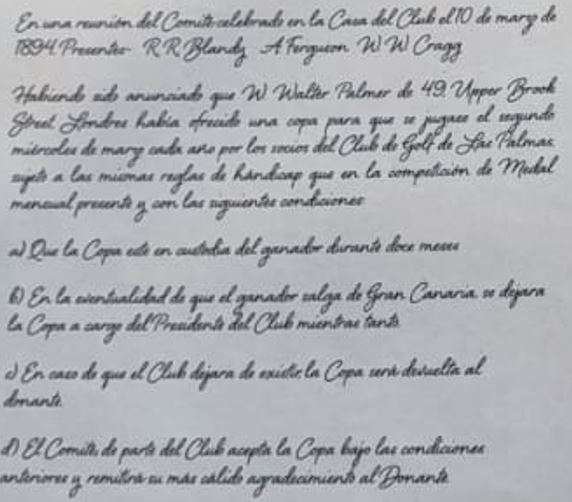 En una reunión del Comité celebrado en la Casa del Club el 10 de marzo de
1894. Presentes- R R Blandy A Ferguson W W Cragg
Habiendo sido anunciado que W Walter Palmer de 49, Upper Brook
Street, Londres había ofrecido una copa para que se jugase el segundo
miércoles de marzo cada año por los socios del Club de Golf de Las Palmas,
sujeto a las mismas reglas de hándicap que en la competición de Medal
mensual presente y con las siguientes condiciones:
a) Que la Copa esté en custodia del ganador durante doce meses
b) En la eventualidad de que el ganador salga de Gran Canaria, se dejara
la Copa a cargo del Presidente del Club mientras tanto.
c) En caso de que el Club dejara de existir, la Copa será devuelta al
donante.
d) El Comité, de parte del Club acepta la Copa bajo las condiciones
anteriores y remitirá su más cálido agradecimiento al Donante.